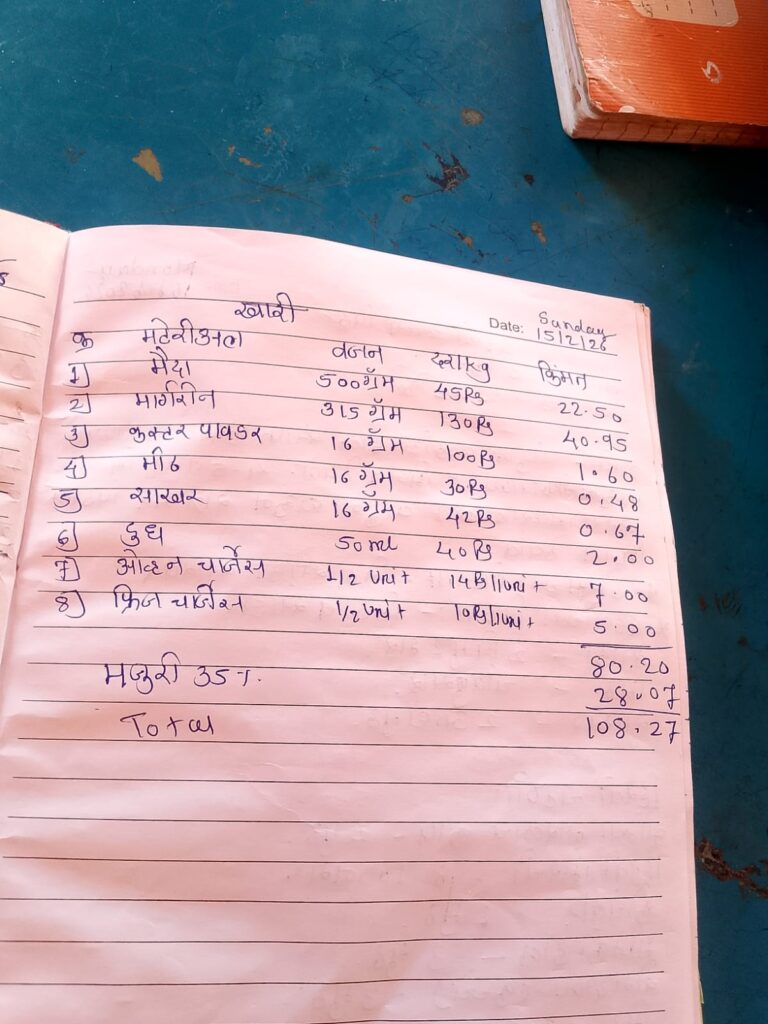 खारी
Date: Sunday 15/2/26
क्र मटेरीअल वजन दर/kg किंमत
1] मैदा 500 ग्रॅम 45Rs 22.50
2] मार्गरीन 315 ग्रॅम 130Rs 40.95
3] कस्टर पावडर 16 ग्रॅम 100Rs 1.60
4] मीठ 16 ग्रॅम 30Rs 0.48
5] साखर 16 ग्रॅम 42Rs 0.67
6] दुध 50 ml 40Rs 2.00
7] ओव्हन चार्जेस 1/2 Unit 14Rs/1Unit 7.00
8] फ्रिज चार्जेस 1/2 Unit 10Rs/1Unit 5.00
80.20
मजुरी 35 %. 28.07
Total 108.27